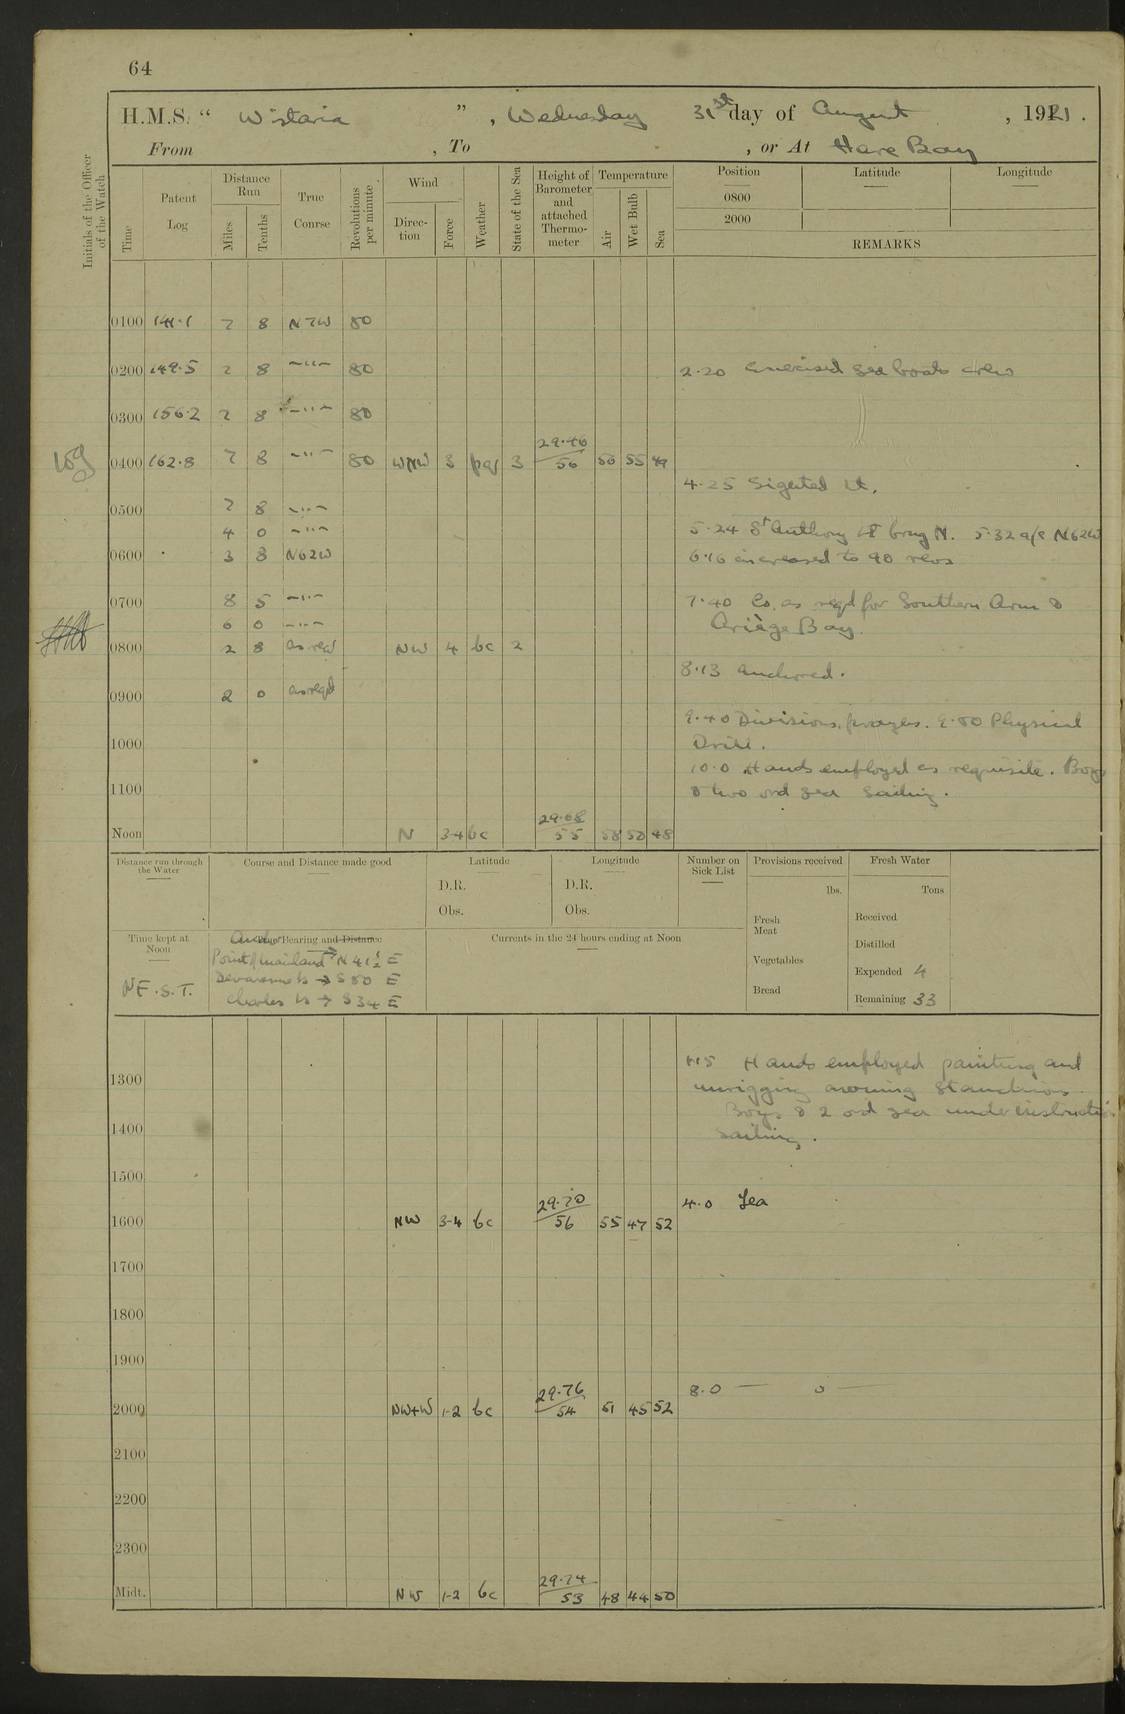 64
H.M.S. “ Wistaria ”, Wednesday 31st day of August, 1921.
From , To , or At Hare Bay
Initials of the Officer of the Watch
Time
Patent Log
Distance Run
Miles
Tenths
True Course
Revolutions per minute
Wind
Direction
Force
Weather
State of the Sea
Height of Barometer and attached Thermometer
Temperature
Air
Wet Bulb
Sea
Position Latitude Longitude
0800
2000
REMARKS
0100 141.1 7 8 N7W 80
0200 149.5 7 8 —"— 80 2.20 Exercised sea boats crew
0300 156.2 7 8 —"— 80
29.46
0400 162.8 7 8 —"— 80 WNW 3 3 56 55 49
4.25 Sighted Lt.
0500 7 8 —"—
4 0 —"— 5.24 St Anthony Lt brng N. 5.32 a/c N62W
0600 3 8 N62W 6.16 increased to 90 revs
0700 8 5 —"— 7.40 Co. as reqd for Southern Arm &
6 0 —"— Ariège Bay.
0800 2 8 as req NW 4 bc 2
8.13 Anchored.
0900 2 0 as reqd
9.40 Divisions, prayers. 9.50 Physical
1000 Drill.
10.0 Hands employed as requisite. Boys
1100 & two ord sea sailing.
29.68
Noon N 3-4 bc 55 58 50 48
Distance run through the Water
Course and Distance made good
Latitude
D.R.
Obs.
Longitude
D.R.
Obs.
Number on Sick List
Provisions received
lbs.
Fresh Meat
Vegetables
Bread
Fresh Water
Tons
Received
Distilled
Expended 4
Remaining 33
Time kept at Noon
N F.S.T.
True Bearing and Distance
Point of Mainland → N 41½ E
→ S 80 E
Charles Is → S 34 E
Currents in the 24 hours ending at Noon
1.15 Hands employed painting and
1300 unrigging awning stanchions.
Boys & 2 ord sea under instruction
1400 sailing.
1500
29.70 4.0 Tea
1600 NW 3-4 bc 56 55 47 52
1700
1800
1900
29.76 8.0 — o —
2000 NW+W 1-2 bc 54 51 45 52
2100
2200
2300
29.74
Midt. NW 1-2 bc 53 48 44 50